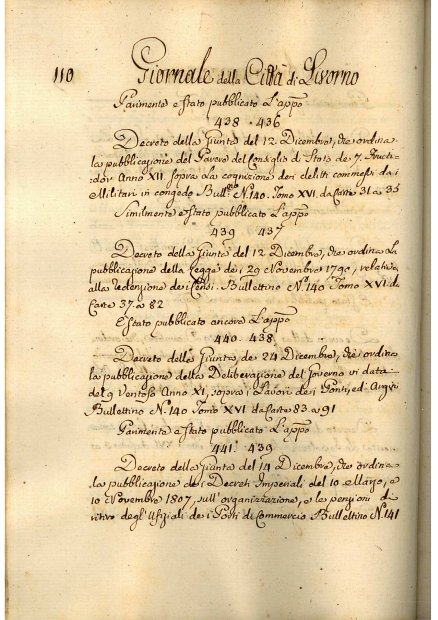 110 Giornale della Città di Livorno
Parimente è stato pubblicato L'appo
438 . 436
Decreto della Giunta del 12 Dicembre, che ordina
la pubblicazione del Parere del Consiglio di Stato de' 7. Fructi-
dor Anno XII. sopra La cognizione dei delitti commessi da i
Militari in congedo Bullno N. 140. Tomo XVI. da Carte 31 a 35
Similmente è stato pubblicato L'appo
439 437
Decreto della Giunta del 12 Dicembre, che ordina La
pubblicazione della Legge dei 29 Novembre 1790, relativa
alla Redenzione dei Censi. Bullettino N. 140 Tomo XVI. da
Carte 37 a 82
È stato pubblicato ancora L'appo
440. 438.
Decreto della Giunta, de 24 Dicembre, che ordina
la pubblicazione della Deliberazione del Governo in data
del 9 Ventoso Anno XI, sopra i Lavori dei Ponti, ed Argini
Bullettino N. 140 Tomo XVI da Carte 83. a 91
Parimente è stato pubblicato L'appo
441. 439
Decreto della Giunta del 14 Dicembre, che ordina
la pubblicazione dei Decreti Imperiali del 10 Marzo, e
10 Novembre 1807, sull'organizzazione, e le pensioni di
ritiro degl'Ufiziali dei Porti di Commercio Bullettino N. 141